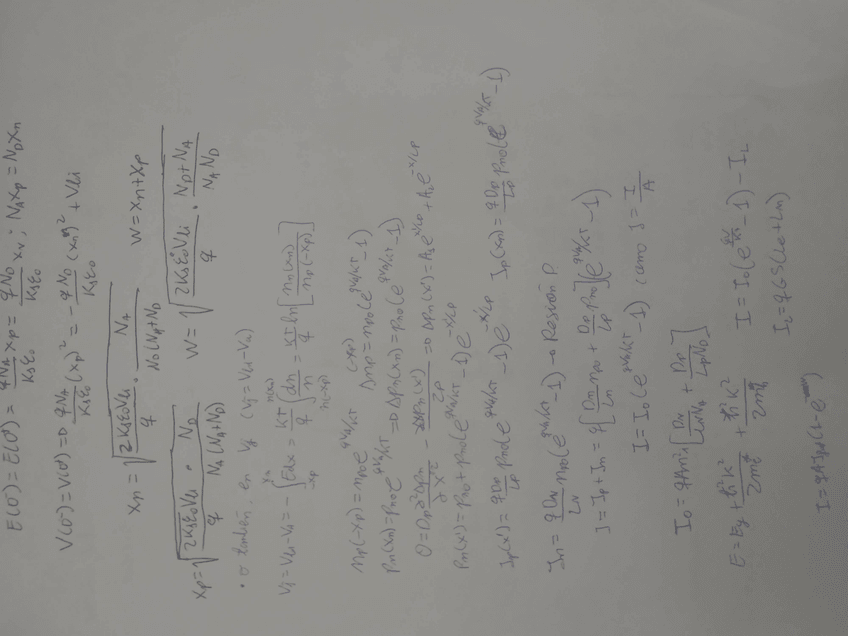 E(0⁻) = E(0⁺) = qN_A/K_sε_0 x_p = qN_D/K_sε_0 x_n ; N_A x_p = N_D x_n
V(0⁻) = V(0⁺) ⇒ qN_A/K_sε_0 (x_p)² = - qN_D/K_sε_0 (x_n)² + V_bi
x_n = √(2K_sε_0V_bi/q · N_A/N_D(N_A+N_D)) W = x_n + x_p
x_p = √(2K_sε_0V_bi/q · N_D/N_A(N_A+N_D)) W = √(2K_sε_0V_bi/q · N_D+N_A/N_AN_D)
• o también, en V_j (V_j = V_bi - V_A)
V_j = V_bi - V_A = -∫_{-x_p}^{x_n} E dx = KT/q ∫_{n(-x_p)}^{n(x_n)} dn/n = KT/q ln[n_n(x_n)/n_p(-x_p)]
n_p(-x_p) = n_{p0} e^{qV_A/KT} Δn_p(-x_p) = n_{p0}(e^{qV_A/KT} - 1)
p_n(x_n) = p_{n0} e^{qV_A/KT} ⇒ Δp_n(x_n) = p_{n0}(e^{qV_A/KT} - 1)
0 = D_p ∂²Δp_n/∂x'² - Δp_n(x')/τ_p ⇒ Δp_n(x') = A_1 e^{x'/L_p} + A_2 e^{-x'/L_p}
p_n(x') = p_{n0} + p_{n0}(e^{qV_A/KT} - 1) e^{-x'/L_p}
J_p(x') = qD_p/L_p p_{n0}(e^{qV_A/KT} - 1) e^{-x'/L_p} J_p(x_n) = qD_p/L_p p_{n0}(e^{qV_A/KT} - 1)
J_n = qD_n/L_n n_{p0}(e^{qV_A/KT} - 1) → Región P
J = J_p + J_n = q[D_n/L_n n_{p0} + D_p/L_p p_{n0}](e^{qV_A/KT} - 1)
I = I_0(e^{qV_A/KT} - 1) como J = I/A
I_0 = qAn_i²[D_n/L_nN_A + D_p/L_pN_D]
E = E_g + ħ²K²/2m_e* + ħ²K²/2m_h* I = I_0(e^{qV/KT} - 1) - I_L
I_L = qGS(L_p + L_n)